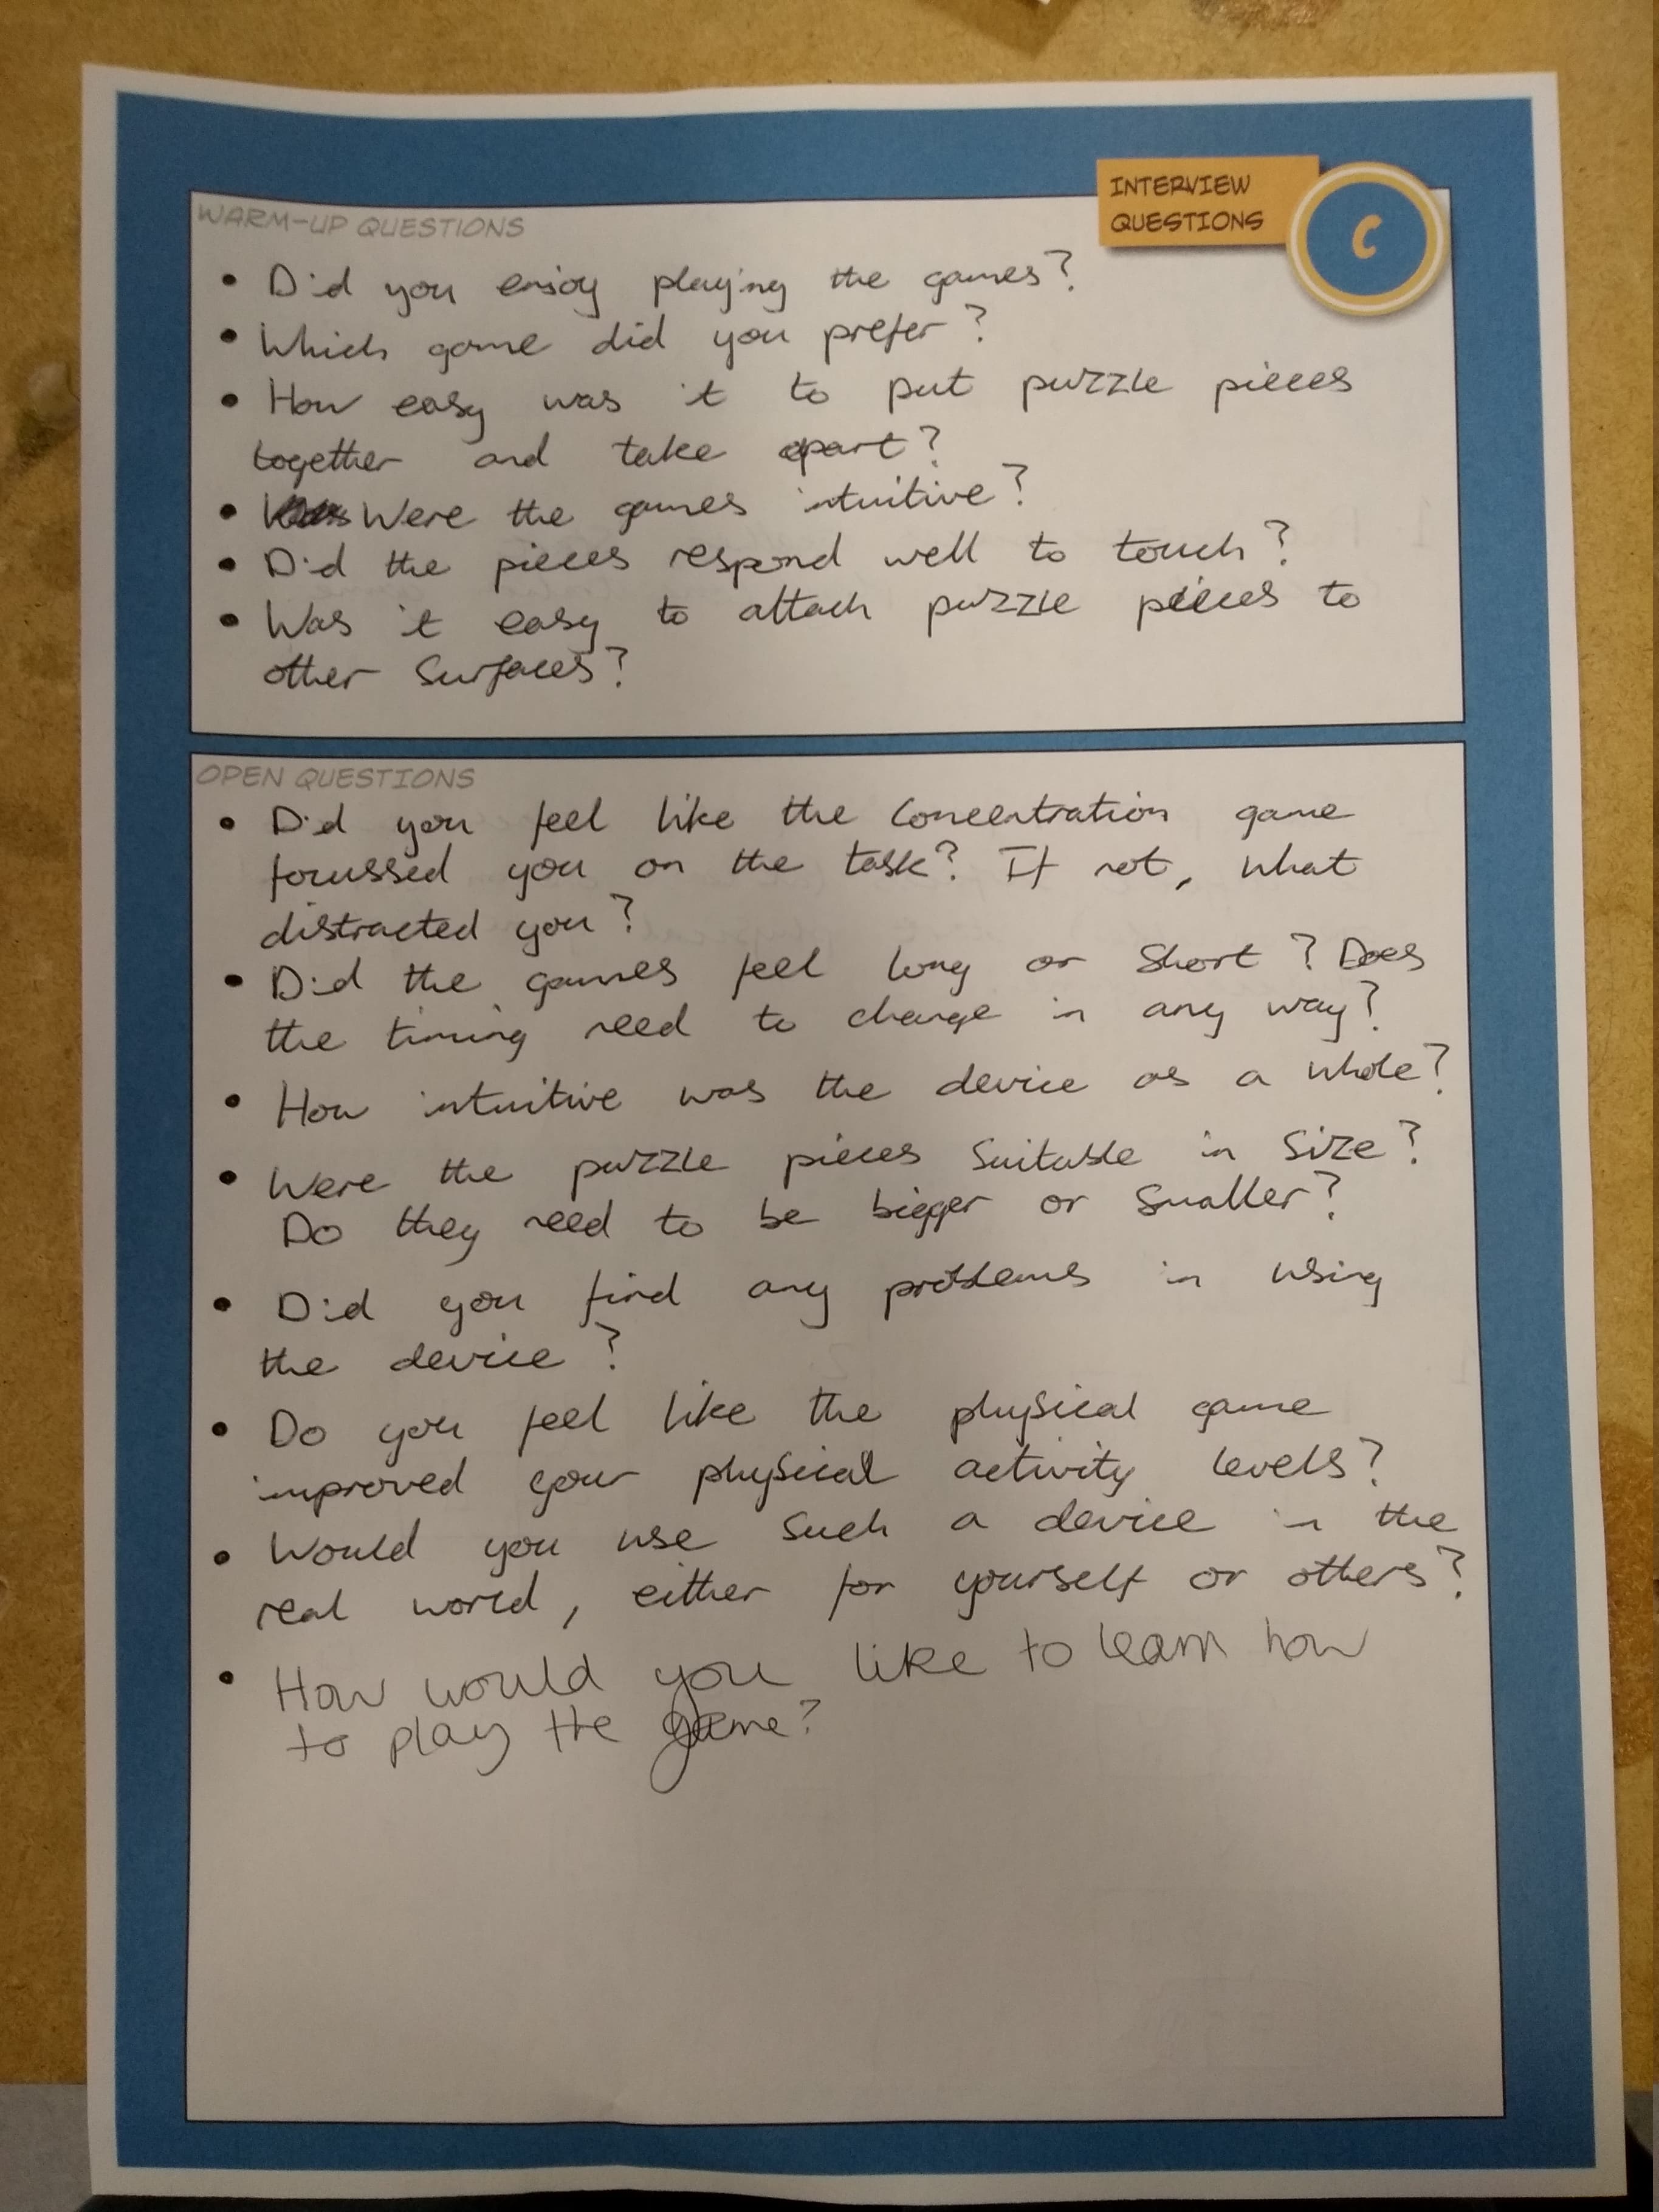 INTERVIEW
QUESTIONS
C
WARM-UP QUESTIONS
• Did you enjoy playing the games?
• Which game did you prefer?
• How easy was it to put puzzle pieces
together and take apart?
• Were the games intuitive?
• Did the pieces respond well to touch?
• Was it easy to attach puzzle pieces to
other surfaces?
OPEN QUESTIONS
• Did you feel like the concentration game
focussed you on the task? If not, what
distracted you?
• Did the games feel long or short? Does
the timing need to change in any way?
• How intuitive was the device as a whole?
• Were the puzzle pieces suitable in size?
Do they need to be bigger or smaller?
• Did you find any problems in using
the device?
• Do you feel like the physical game
improved your physical activity levels?
• Would you use such a device in the
real world, either for yourself or others?
• How would you like to learn how
to play the game?